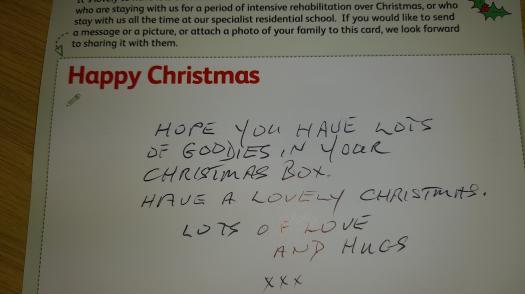 who are staying with us for a period of intensive rehabilitation over Christmas, or who
stay with us all the time at our specialist residential school. If you would like to send
a message or a picture, or attach a photo of your family to this card, we look forward
to sharing it with them.
Happy Christmas
HOPE YOU HAVE LOTS
OF GOODIES IN YOUR
CHRISTMAS BOX.
HAVE A LOVELY CHRISTMAS.
LOTS OF LOVE
AND HUGS
xxx